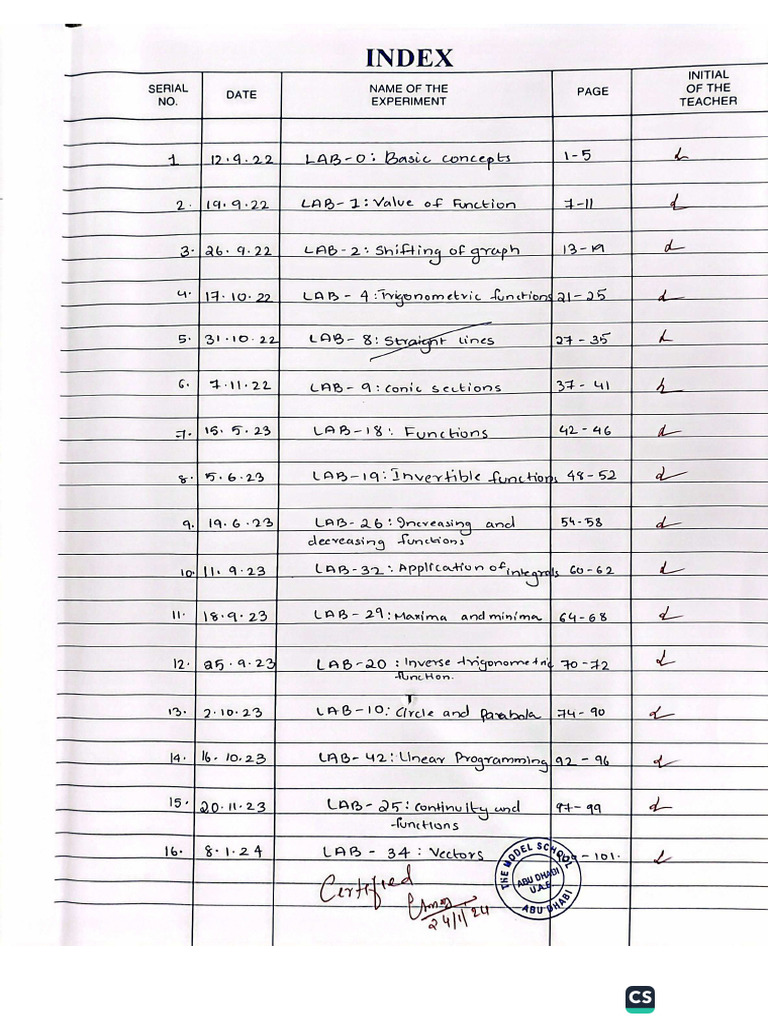 INDEX
SERIAL NO. DATE NAME OF THE EXPERIMENT PAGE INITIAL OF THE TEACHER
1 12.9.22 LAB-0: Basic concepts 1-5
2. 19.9.22 LAB-1: Value of Function 7-11
3. 26.9.22 LAB-2: Shifting of graph 13-19
4. 17.10.22 LAB-4: Trigonometric functions 21-25
5. 31.10.22 LAB-8: Straight lines 27-35
6. 7.11.22 LAB-9: conic sections 37-41
7. 15.5.23 LAB-18: Functions 42-46
8. 5.6.23 LAB-19: Invertible functions 48-52
9. 19.6.23 LAB-26: Increasing and 54-58
decreasing functions
10. 11.9.23 LAB-32: Application of integrals 60-62
11. 18.9.23 LAB-29: Maxima and minima 64-68
12. 25.9.23 LAB-20: Inverse trigonometric 70-72
function.
13. 2.10.23 LAB-10: Circle and Parabola 74-90
14. 16.10.23 LAB-42: Linear Programming 92-96
15. 20.11.23 LAB-25: Continuity and 97-99
functions
16. 8.1.24 LAB-34: Vectors -101.
THE MODEL SCHOOL
ABU DHABI
U.A.E
ABU DHABI
Certified
24/1/24
CS